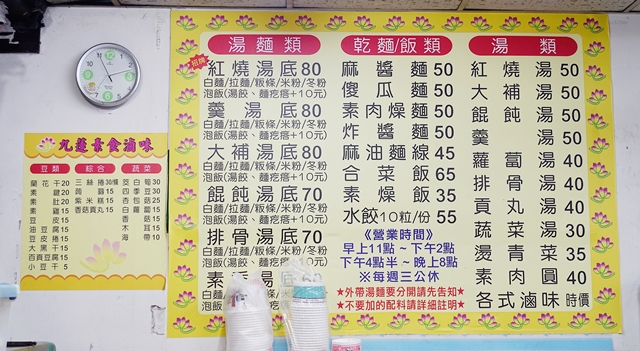 湯麵類
招牌
紅燒湯底80
白麵/拉麵/粄條/米粉/冬粉
泡飯(湯餃、麵疙瘩+10元)
羹湯底80
白麵/拉麵/粄條/米粉/冬粉
泡飯(湯餃、麵疙瘩+10元)
大補湯底80
白麵/拉麵/粄條/米粉/冬粉
泡飯(湯餃、麵疙瘩+10元)
餛飩湯底70
白麵/拉麵/粄條/米粉/冬粉
泡飯(湯餃、麵疙瘩+10元)
排骨湯底70
白麵/拉麵/粄條/米粉/冬粉
泡飯(湯餃、麵疙瘩+10元)
乾麵/飯類
麻醬麵50
傻瓜麵50
素肉燥麵50
炸醬麵50
麻油麵線45
合菜飯65
素燥飯35
水餃10粒/份55
《營業時間》
早上11點~下午2點
下午4點半~晚上8點
※每週三公休
★外帶湯麵要分開請先告知★
★不要加的配料請詳細註明★
湯類
紅燒湯50
大補湯50
餛飩湯50
羹湯50
蘿蔔湯40
排骨湯40
貢丸湯40
蔬菜湯30
燙青菜35
素肉圓40
各式滷味時價
九蓮素食滷味
豆類
蘭花干20
素雞15
豆皮15
油豆腐15
豆皮捲15
大黑干15
百頁豆腐15
小豆干5
綜合
三絲捲30
紫米糕15
香菇貢丸15
蔬菜
木耳
海帶10